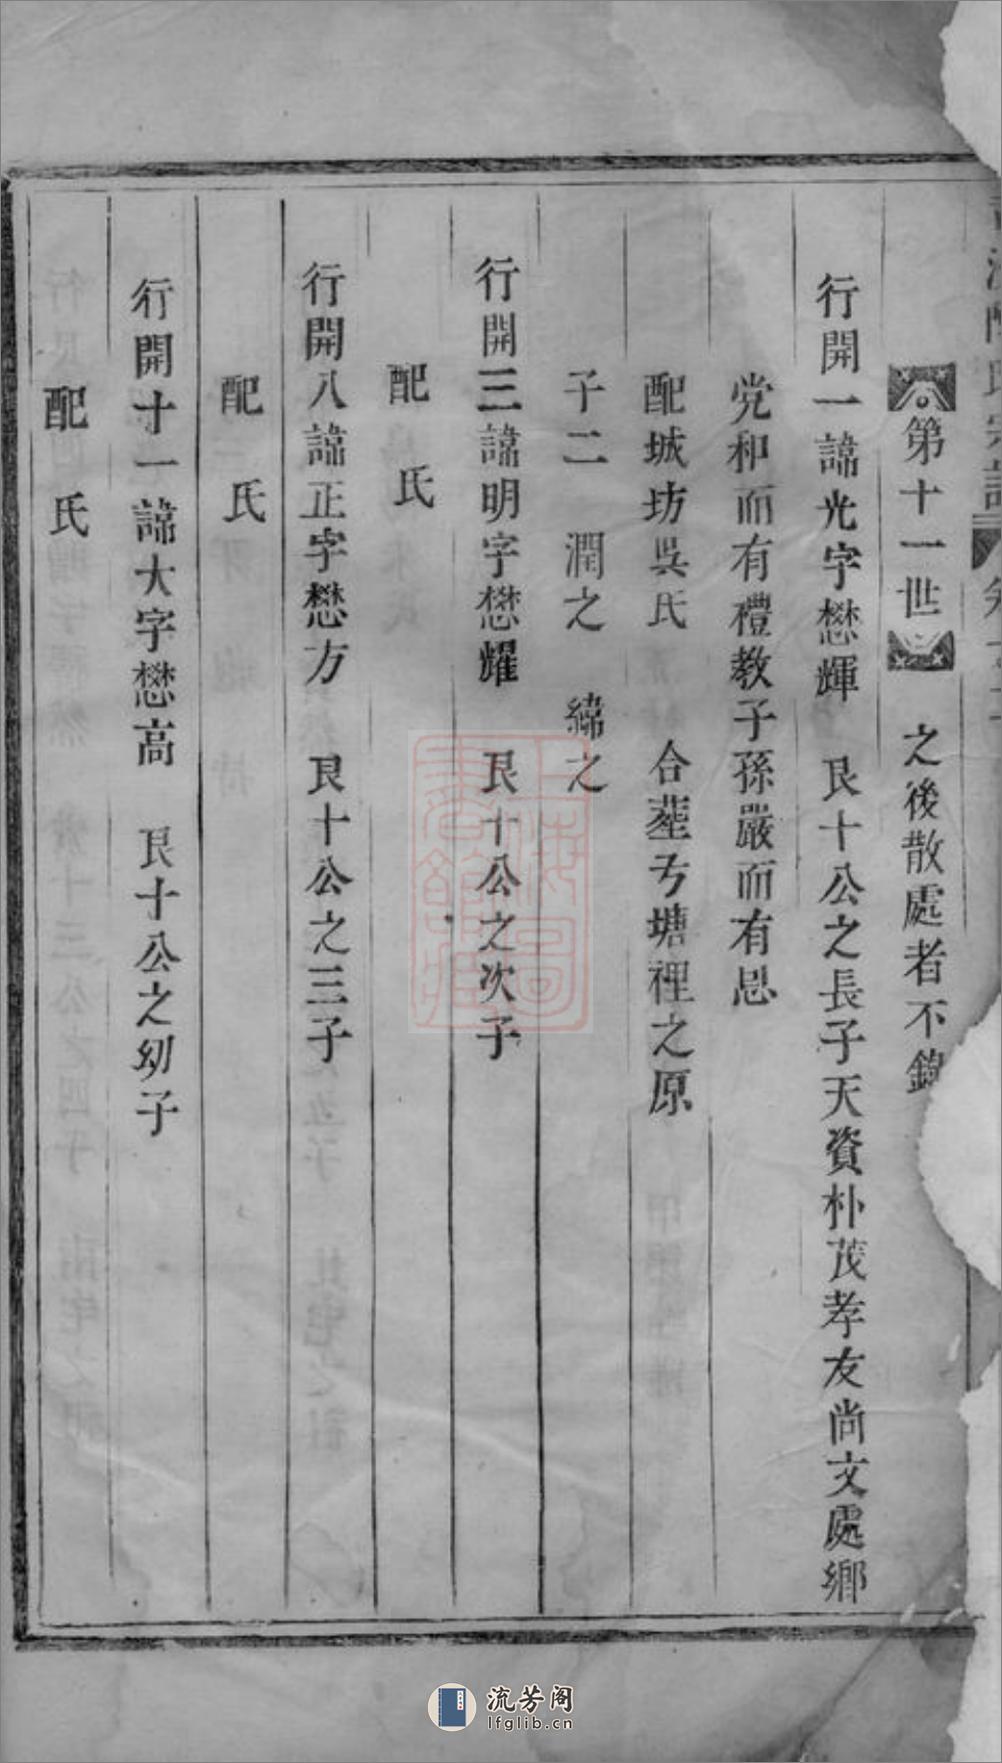 第十一世 之後散處者不錄
行開一諱光字懋輝 艮十公之長子天資朴茂孝友尚文處鄉
党和而有禮教子孫嚴而有恩
配城坊吳氏 合塟芳塘裡之原
子二 潤之 緯之
行開三諱明字懋耀 艮十公之次子
配 氏
行開八諱正字懋方 艮十公之三子
配 氏
行開十一諱大字懋高 艮十公之幼子
配 氏
流芳阁
lfglib.cn